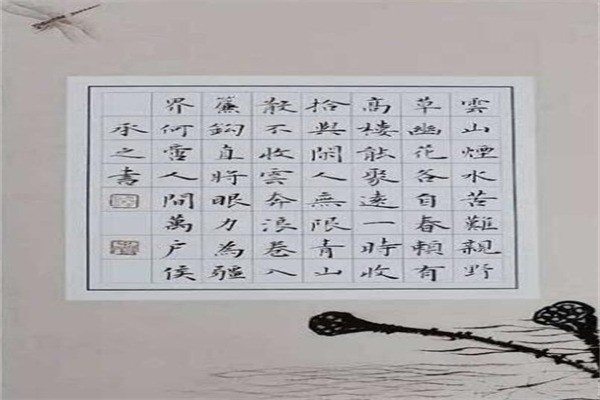 雲山煙水苦難親野
草幽花各自春賴有
高樓能聚遠一時收
拾與閑人無限青山
散不收雲奔浪卷入
簾鈎直將眼力為疆
界何啻人間萬户侯
承之書